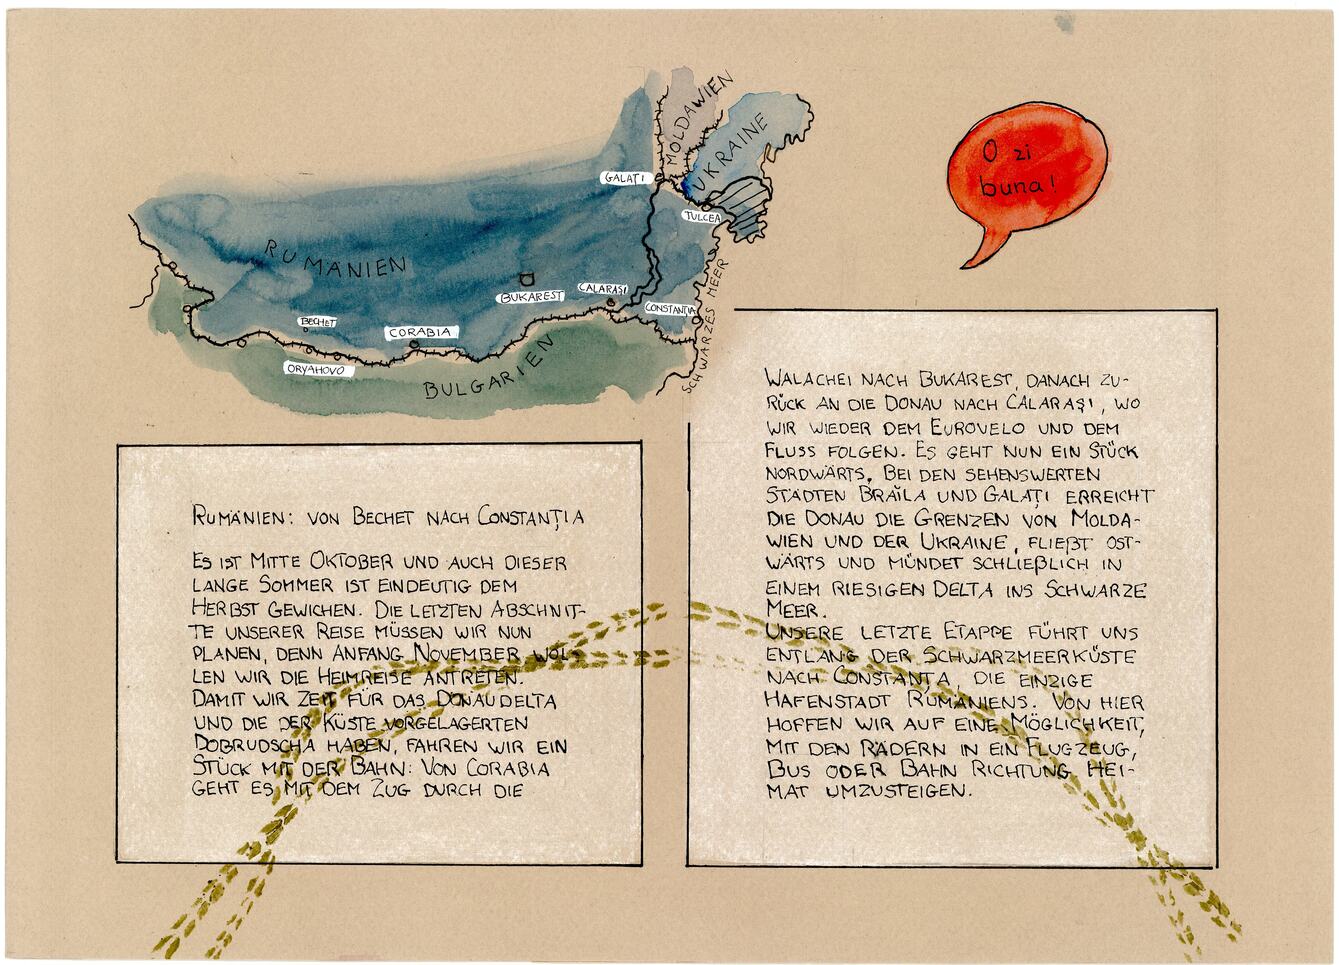 MOLDAWIEN
UKRAINE
GALAȚI
TULCEA
RUMÄNIEN
BUKAREST
CALARAȘI
CONSTANȚIA
SCHWARZES MEER
BECHET
CORABIA
ORYAHOVO
BULGARIEN
O zi
buna!
RUMÄNIEN: VON BECHET NACH CONSTANȚIA
ES IST MITTE OKTOBER UND AUCH DIESER
LANGE SOMMER IST EINDEUTIG DEM
HERBST GEWICHEN. DIE LETZTEN ABSCHNIT-
TE UNSERER REISE MÜSSEN WIR NUN
PLANEN, DENN ANFANG NOVEMBER WOL-
LEN WIR DIE HEIMREISE ANTRETEN.
DAMIT WIR ZEIT FÜR DAS DONAUDELTA
UND DIE DER KÜSTE VORGELAGERTEN
DOBRUDSCHA HABEN, FAHREN WIR EIN
STÜCK MIT DER BAHN: VON CORABIA
GEHT ES MIT DEM ZUG DURCH DIE
WALACHEI NACH BUKAREST, DANACH ZU-
RÜCK AN DIE DONAU NACH CALARAȘI, WO
WIR WIEDER DEM EUROVELO UND DEM
FLUSS FOLGEN. ES GEHT NUN EIN STÜCK
NORDWÄRTS. BEI DEN SEHENSWERTEN
STÄDTEN BRAÏLA UND GALAȚI ERREICHT
DIE DONAU DIE GRENZEN VON MOLDA-
WIEN UND DER UKRAINE, FLIEẞT OST-
WÄRTS UND MÜNDET SCHLIEẞLICH IN
EINEM RIESIGEN DELTA INS SCHWARZE
MEER.
UNSERE LETZTE ETAPPE FÜHRT UNS
ENTLANG DER SCHWARZMEERKÜSTE
NACH CONSTANTA, DIE EINZIGE
HAFENSTADT RUMÄNIENS. VON HIER
HOFFEN WIR AUF EINE MÖGLICHKEIT,
MIT DEN RÄDERN IN EIN FLUGZEUG,
BUS ODER BAHN RICHTUNG HEI-
MAT UMZUSTEIGEN.